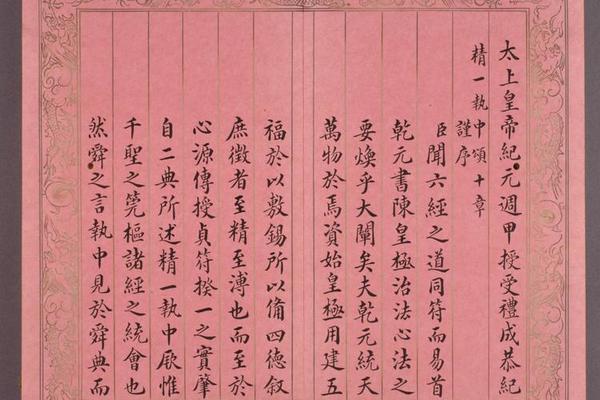 太上皇帝紀元週甲授受禮成恭紀
精一執中頌十章
謹序
臣聞六經之道同符而易首
乾元書陳皇極治法心法之
要煥乎大闡矣夫乾元統天
萬物於焉資始皇極用建五
福於以敷錫所以僃四德叙
庶徵者至精至溥也而至於
心源傳授貞符揆一之實肇
自二典所述精一執中厥惟
千聖之筦樞諸經之統會也
然舜之言執中見於舜典而